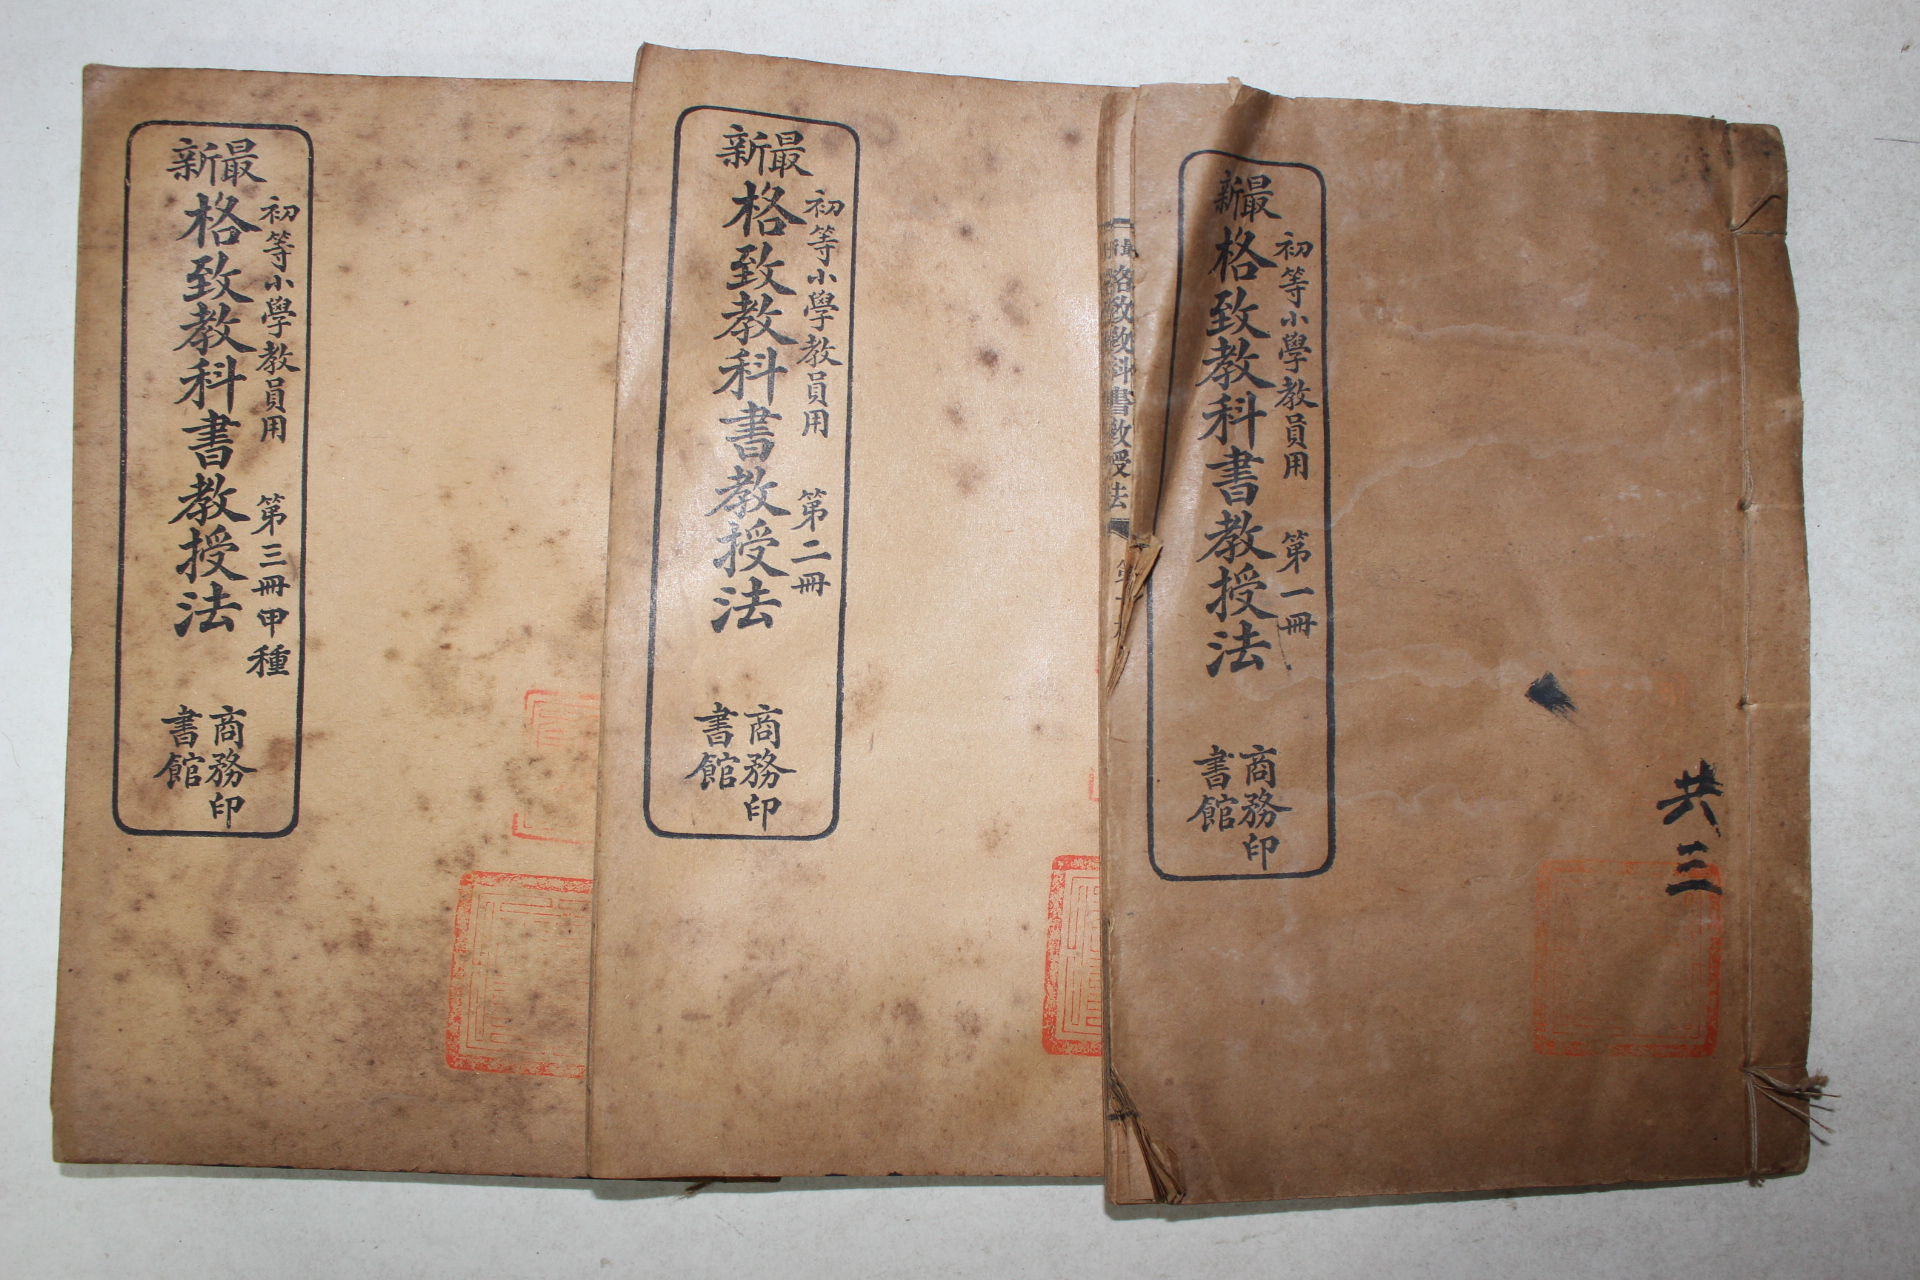 最新
初等小學教員用 第一冊
格致教科書教授法
商務印
書館
共三
格致教科書教授法
最新
初等小學教員用 第二冊
格致教科書教授法
商務印
書館
最新
初等小學教員用 第三冊甲種
格致教科書教授法
商務印
書館